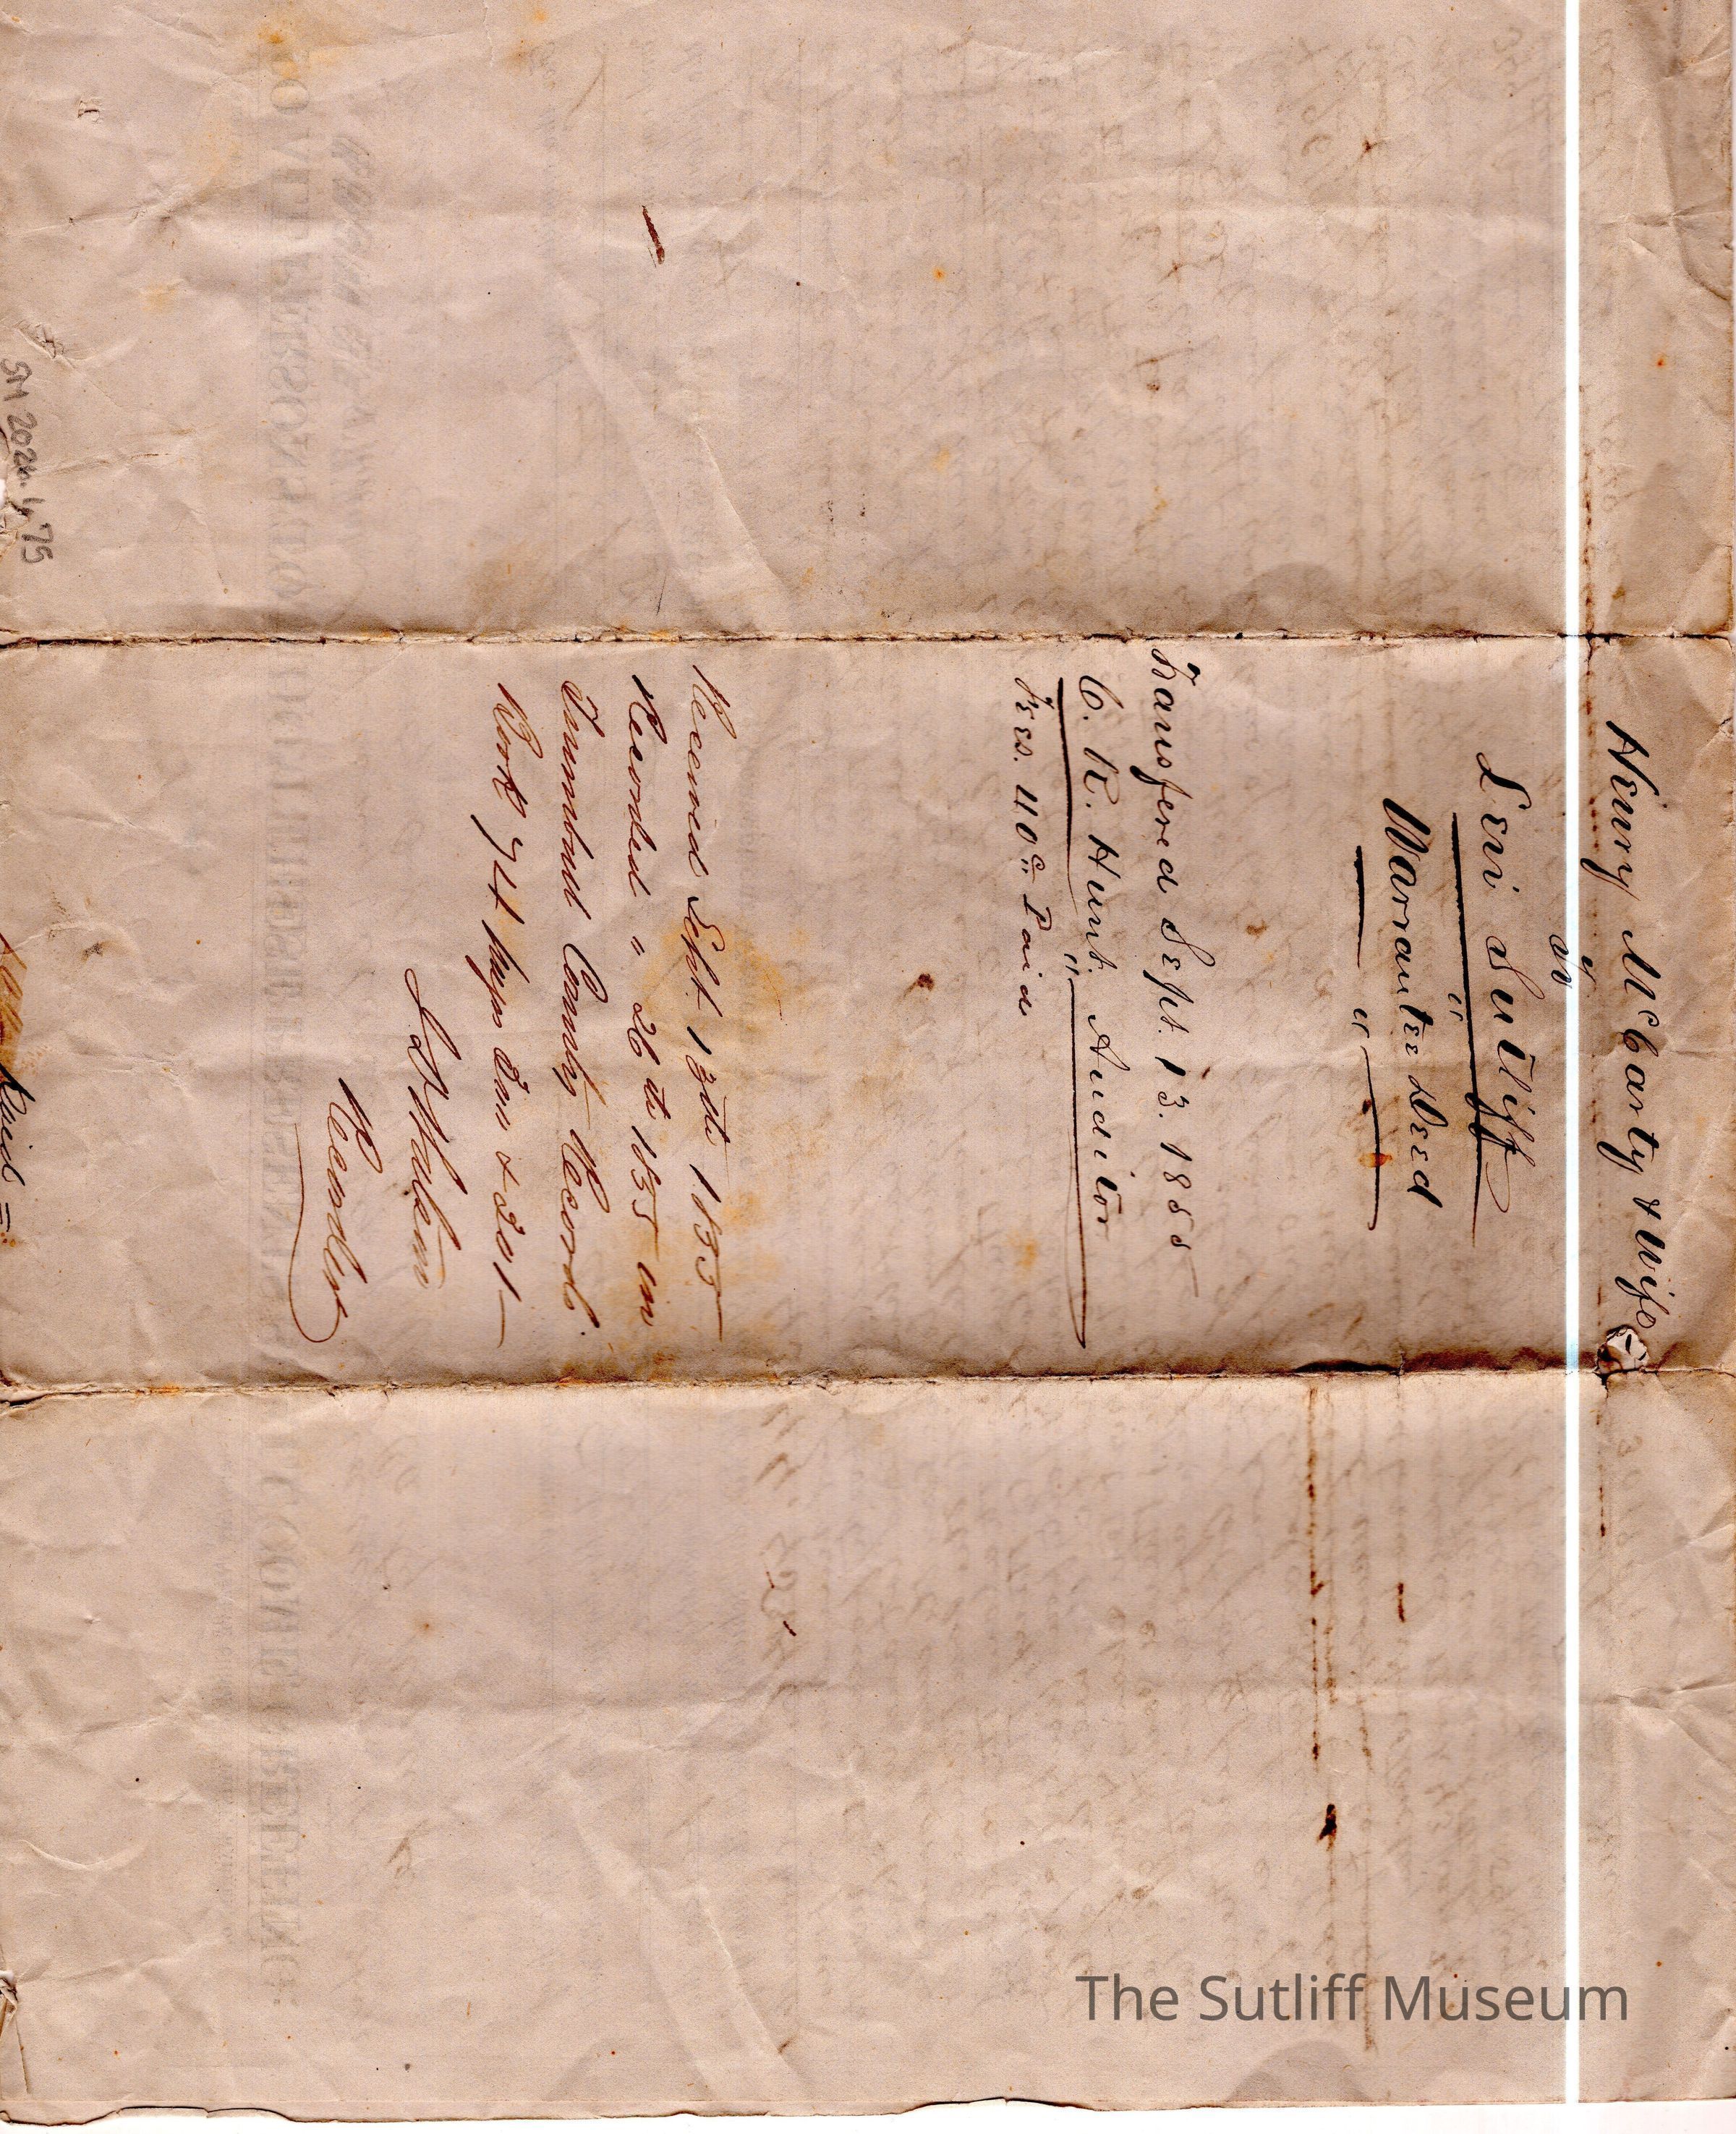 Henry McCarty & Wife
to
Levi Sutliff
Warrantee Deed
Transfered Sept. 13. 1855
C. R. Hunt. Auditor
Fees. 40 cts Paid
Received Sept. 13th 1855
Recorded " 26th 1855 in
Trumbull County Records
Book 74 pages 200 & 201
Recorder
SM 2020.4.75
The Sutliff Museum